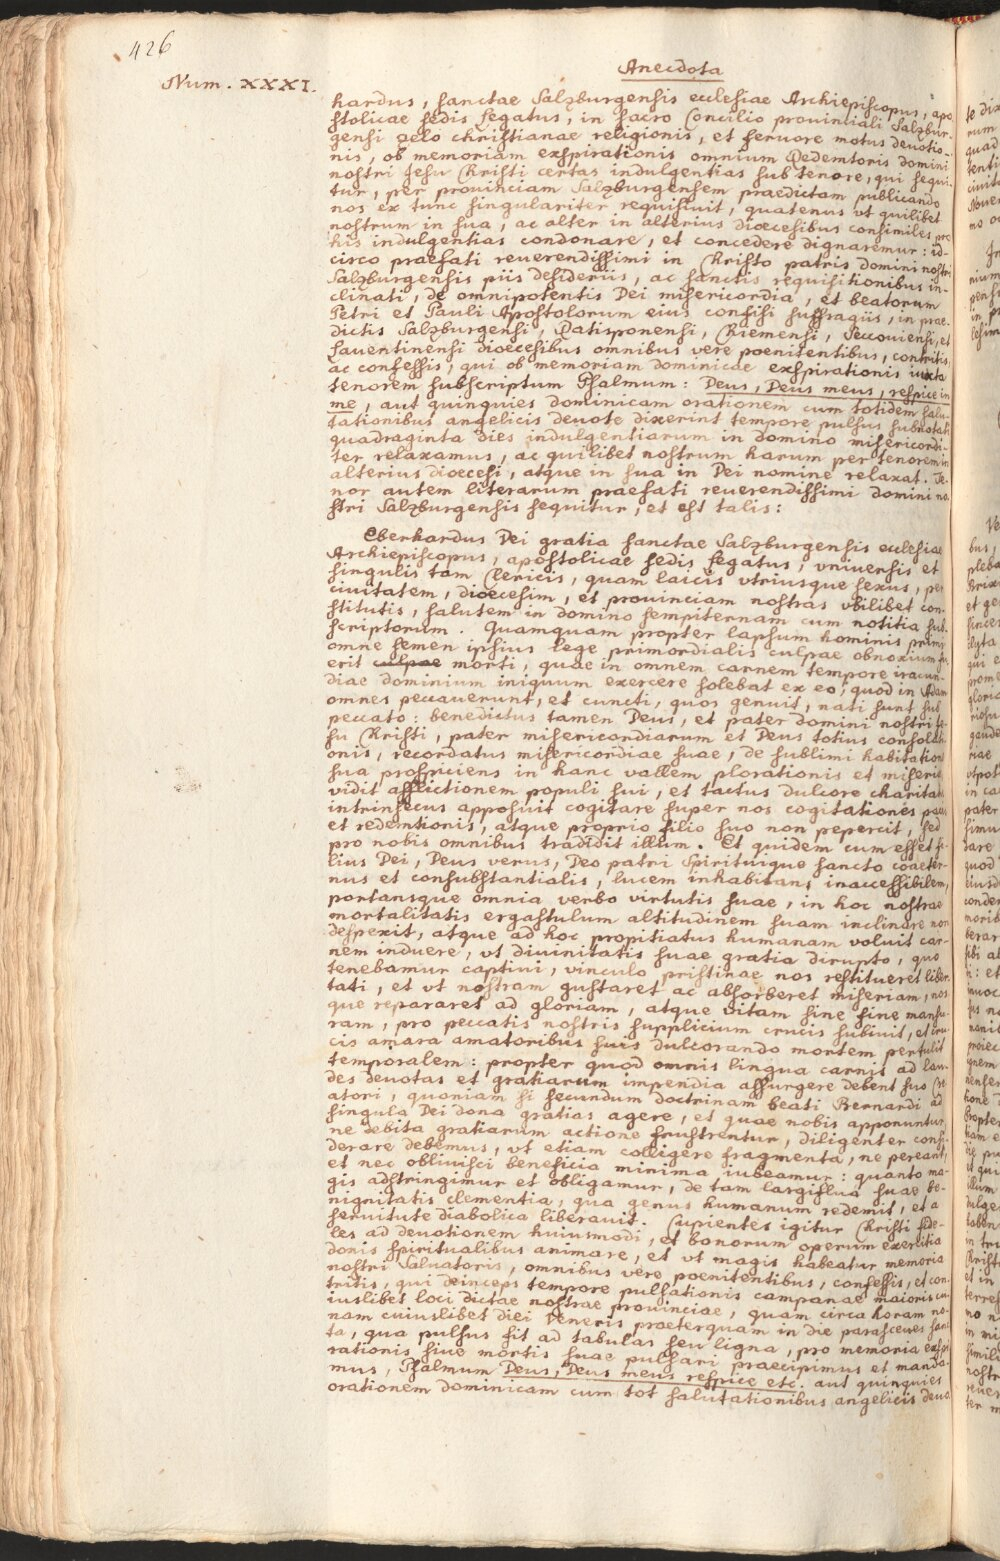 426
Anecdota
Num. XXXI.
hardus, sanctae Salzburgensis ecclesiae Archiepiscopus, apo
stolicae sedis Legatus, in sacro Concilio prouinciali Salzbur-
gensi zelo christianae religionis, et feruore motus deuotio-
nis, ob memoriam exspirationis omnium Redemtoris domini
nostri Jesu Christi certas indulgentias sub tenore, qui sequi-
tur, per prouinciam Salzburgensem praedictam publicando
nos ex tunc singulariter requisiuit, quatenus vt quilibet
nostrum in sua, ac alter in alterius dioecesibus consimiles pro
his indulgentias condonare, et concedere dignaremur: id-
circo praefati reuerendissimi in Christo patris domini nostri
Salzburgensis piis desideriis, ac sanctis requisitionibus in-
clinati, de omnipotentis Dei misericordia, et beatorum
Petri et Pauli Apostolorum eius confisi suffragiis, in prae-
dictis Salzburgensi, Ratisponensi, Chiemensi, Seccouiensi, et
Lauentinensi dioecesibus omnibus vere poenitentibus, contritis,
ac confessis, qui ob memoriam dominicae exspirationis iuxta
tenorem subscriptum Psalmum: Deus, Deus meus, respice in
me, aut quinquies dominicam orationem cum totidem salu-
tationibus angelicis deuote dixerint tempore pulsus subnotati
quadraginta dies indulgentiarum in domino misericordi-
ter relaxamus, ac quilibet nostrum harum per tenorem in
alterius dioecesi, atque in sua in Dei nomine relaxat. Te-
nor autem literarum praefati reuerendissimi domini no
stri Salzburgensis sequitur, et est talis:
Eberhardus Dei gratia sanctae Salzburgensis ecclesiae
Archiepiscopus, apostolicae sedis Legatus, vniuersis et
singulis tam Clericis, quam laicis vtriusque sexus, per
ciuitatem, dioecesim, et prouinciam nostras vbilibet con-
stitutis, salutem in domino sempiternam cum notitia sub-
scriptorum. Quamquam propter lapsum hominis primi
omne semen ipsius lege primordialis culpae obnoxium fu-
erit culpae morti, quae in omnem carnem tempore iracun-
diae dominium iniquum exercere solebat ex eo, quod in Adam
omnes peccauerunt, et cuncti, quos genuit, nati sunt sub
peccato: benedictus tamen Deus, et pater domini nostri Je-
su Christi, pater misericordiarum et Deus totius consolati-
onis, recordatus misericordiae suae, de sublimi habitatione
sua prospiciens in hanc vallem plorationis et miseriae
vidit afflictionem populi sui, et tactus dulcore charitatis
intrinsecus apposuit cogitare super nos cogitationes pacis
et redemtionis, atque proprio filio suo non pepercit, sed
pro nobis omnibus tradidit illum. Et quidem cum esset fi-
lius Dei, Deus verus, Deo patri Spirituique sancto coaeter-
nus et consubstantialis, lucem inhabitans inaccessibilem,
portansque omnia verbo virtutis suae, in hoc nostrae
mortalitatis ergastulum altitudinem suam inclinare non
despexit, atque ad hoc propitiatus humanam voluit car-
nem induere, vt diuinitatis suae gratia dirupto, quo
tenebamur captiui, vinculo pristinae nos restitueret liber-
tati, et vt nostram gustaret ac absorberet miseriam, nos
que repararet ad gloriam, atque vitam sine fine mansu-
ram, pro peccatis nostris supplicium crucis subiuit, et cru
cis amara amatoribus suis dulcorando mortem pertulit
temporalem: propter quod omnis lingua carnis ad lau-
des deuotas et gratiarum impendia assurgere debent suo Cre
atori, quoniam si secundum doctrinam beati Bernardi ad
singula Dei dona gratias agere, et quae nobis apponuntur,
ne debita gratiarum actione frustrentur, diligenter consi-
derare debemus, vt etiam colligere fragmenta, ne pereant,
et nec obliuisci beneficia minima iubeamur: quanto ma-
gis adstringimur et obligamur, de tam largiflua suae be-
nignitatis clementia, qua genus humanum redemit, et a
seruitute diabolica liberauit. Cupientes igitur Christi fide-
les ad deuotionem huiusmodi, et bonorum operum exercitia
donis spiritualibus animare, et vt magis habeatur memoria
nostri Saluatoris, omnibus vere poenitentibus, confessis, et con-
tritis, qui deinceps tempore pulsationis campanae maioris cu-
iuslibet loci dictae nostrae prouinciae, quam circa horam no-
nam cuiuslibet diei Veneris praeterquam in die parasceues sanc
ta, qua pulsus fit ad tabulas seu ligna, pro memoria exspi
rationis siue mortis suae pulsari praecipimus et manda-
mus, Psalmum Deus, Deus meus respice etc. aut quinquies
orationem dominicam cum tot salutationibus angelicis deuo